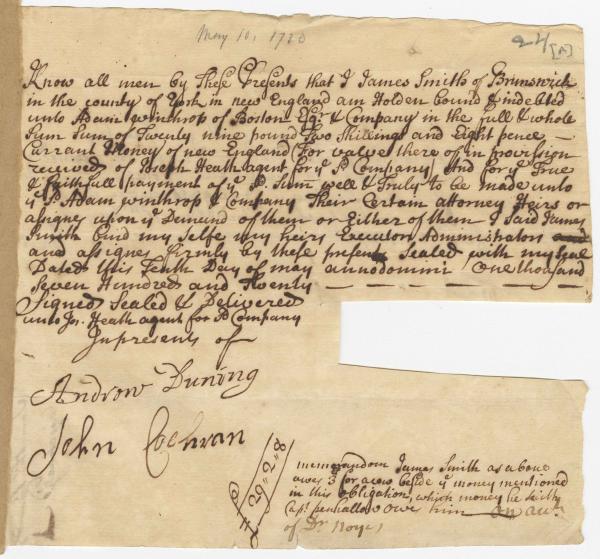 May 10, 1720
24 [A]
Know all men by These Presents that I James Smith of Brunswick
in the county of York in new England am Holden bound & indebted
unto Adam Winthrop of Boston Esqr & Company in the full & whole
Sum Sum of Twenty nine pound Two Shillings and Eight pence —
Currant Money of new England For value there of in provission
received of Joseph Heath agent for ye sd Company And for ye True
& faithfull payment of ye sd Sum well & Truly to be made unto
ye sd Adam winthrop & Company Their Certain attorney Heirs or
assignes upon ye Demand of them or Either of them I said James
Smith bind my selfe my heirs Executors Administrators and
and assignes firmly by these presents Sealed with my Seal
Dated this Tenth Day of may annodommini One thousand
Seven Hundred and Twenty — — — — — — —
Signed Sealed & Delivered
unto Jos. Heath agent for sd Company
In presents of
Andrew Duning
John Cochran
29 = 2 = 8
memorandom James Smith as above
owes 3 for besides ye money mentioned
in this obligation, which money he
Capt. penhallow owe him on
of Dr Noyes